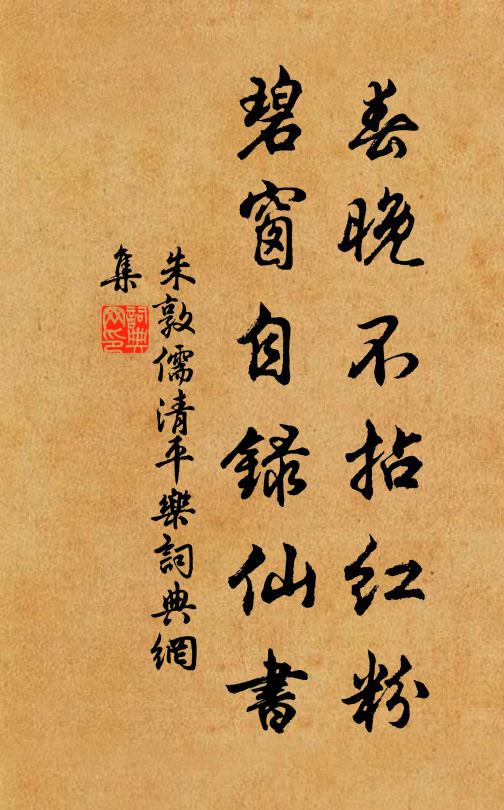 春晚不拈紅粉
碧窗自錄仙書
朱敦儒清平樂詞典網
集
詞典網印